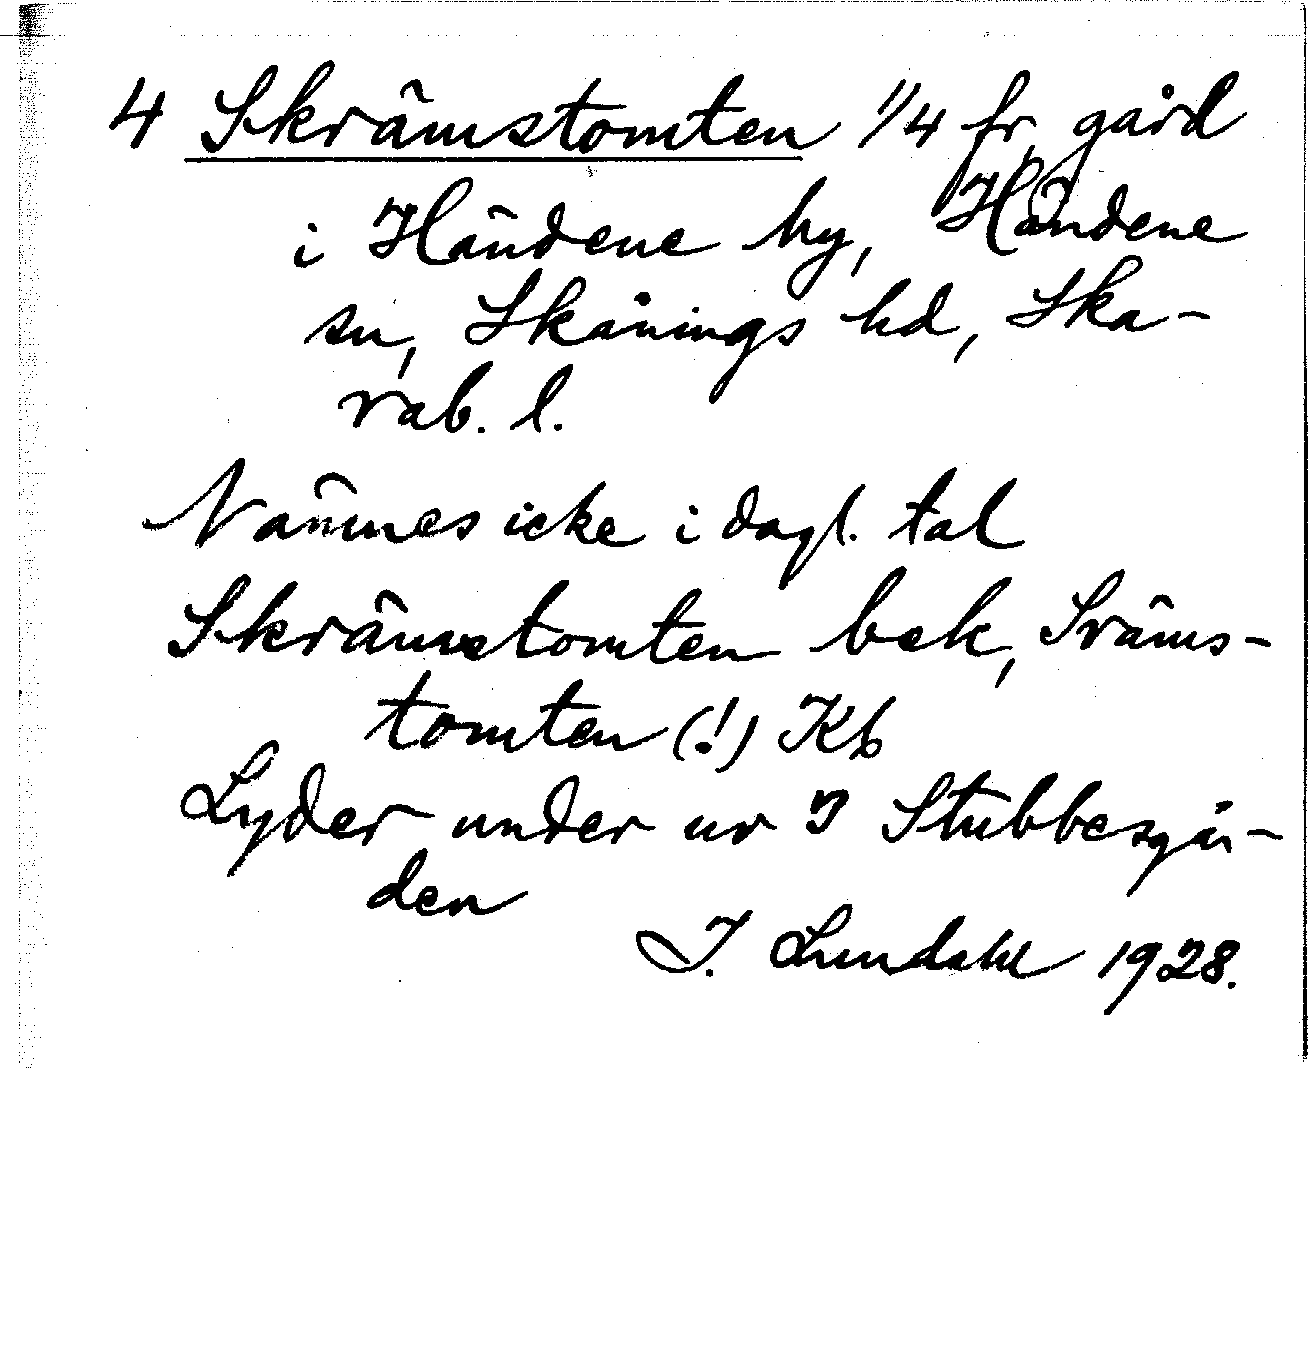 4 Skrämstomten 1/4 fr. gård
i Händene by, Händene
sn, Skånings hd, Ska-
rab. l.
Nämnes icke i dagl. tal
Skrämstomten bek, Sräms-
tomten (!) Kb
Lyder under nr 3 Stubbesgår-
den
I. Lundahl 1928.